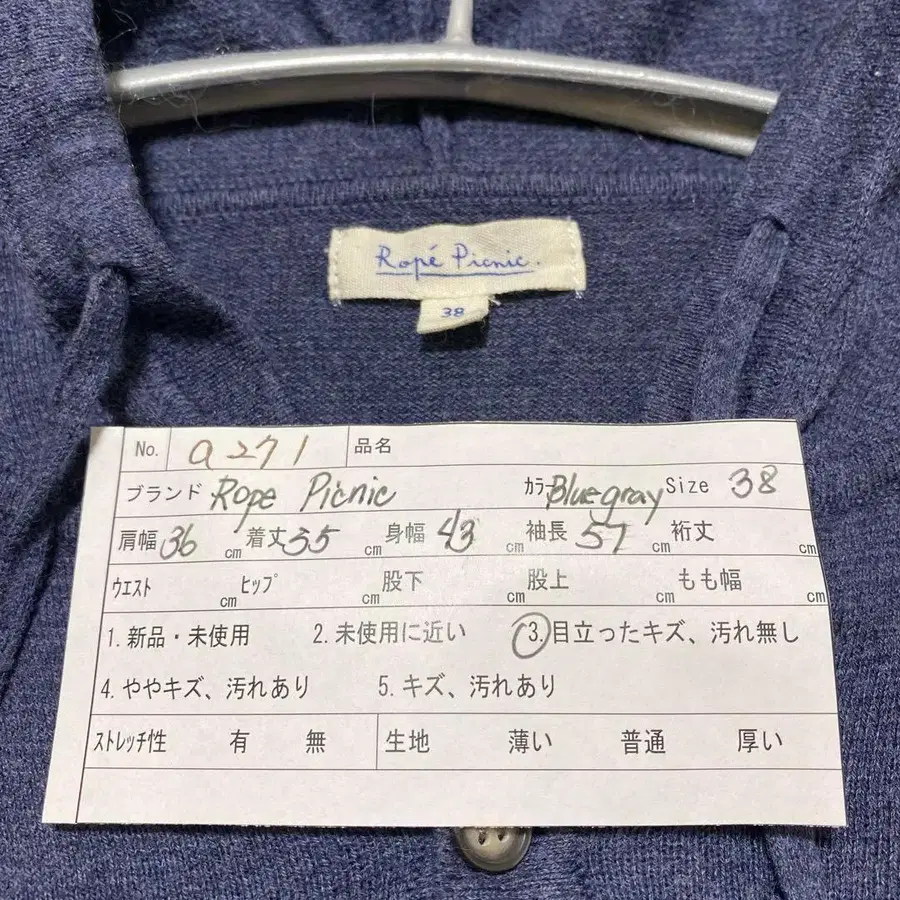 Ropé Picnic.
38
No. a271 品名
ブランド Rope Picnic カラー Bluegray Size 38
肩幅 36 cm 着丈 55 cm 身幅 43 cm 袖長 57 cm 裄丈 cm
ウエスト cm ヒップ cm 股下 cm 股上 cm もも幅 cm
1. 新品・未使用 2. 未使用に近い 3. 目立ったキズ、汚れ無し
4. ややキズ、汚れあり 5. キズ、汚れあり
ストレッチ性 有 無 生地 薄い 普通 厚い